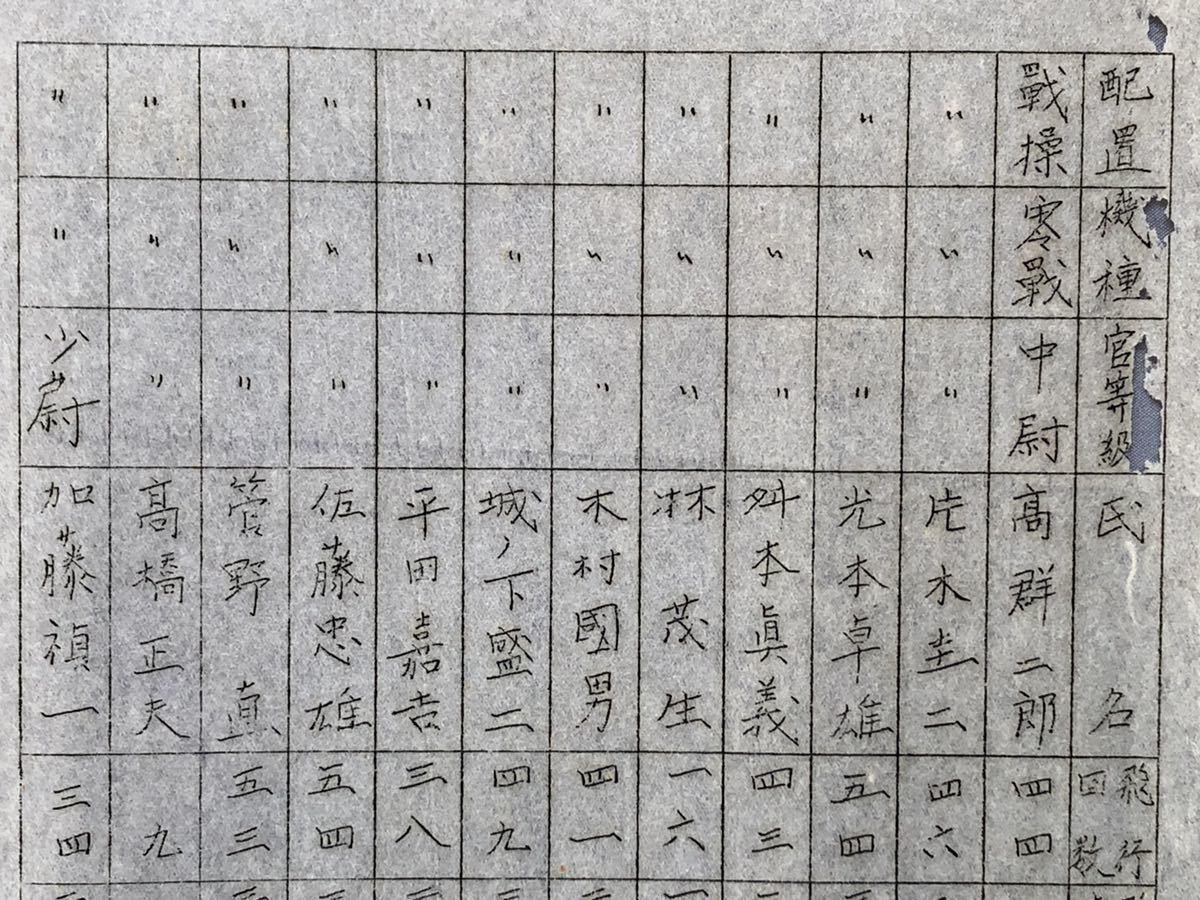 配置 機種 官等級 氏名 飛行回数
戰操 零戰 中尉 高群二郎 四四
〃 〃 〃 片木圭二 四六
〃 〃 〃 光本卓雄 五四
〃 〃 〃 舛本眞義 四三
〃 〃 〃 林茂生 一六
〃 〃 〃 木村國男 四一
〃 〃 〃 城ノ下盛二 四九
〃 〃 〃 平田嘉吉 三八
〃 〃 〃 佐藤忠雄 五四
〃 〃 〃 管野直 五三
〃 〃 〃 高橋正夫 九
〃 〃 少尉 加藤禎一 三四